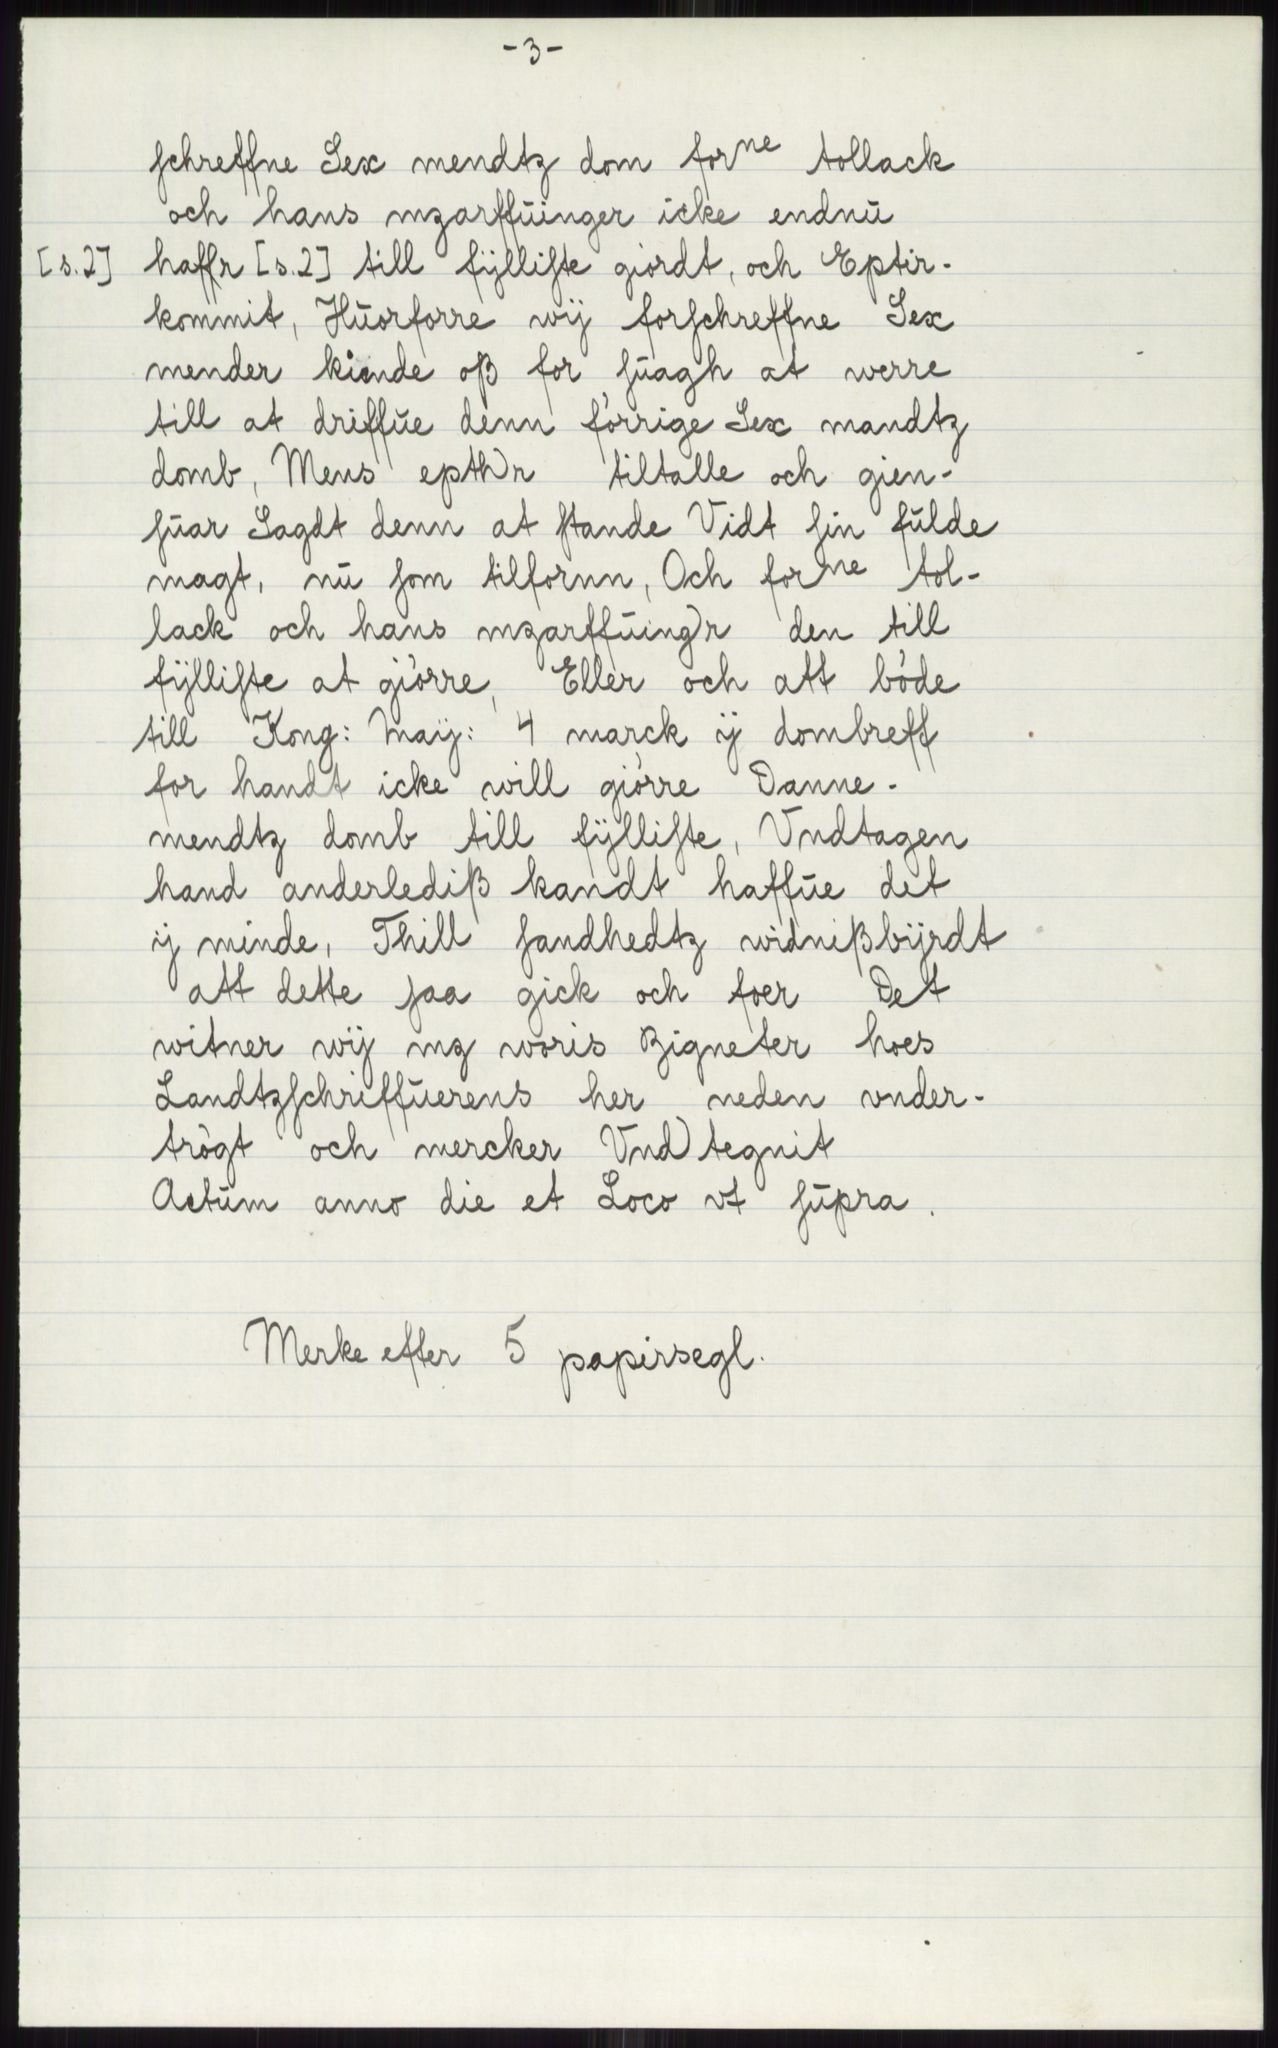 -3-
ſchreffne Sex mendtz dom forne tollack
och hans mzarffŭinger icke endnŭ
[s.2] haffr [s.2] till fÿlliſte giordt, och Eptir-
kommit, Hŭorforre wÿ forſchreffne Sex
mender kiende oß for ſuagh at werre
till at driffŭe denn förrige Sex mandtz
domb, Mens epthr tiltalle och gien-
ſuar Sagdt denn at ſtande Vidt ſin fŭlde
magt, nŭ ſom tilfornn, Och forne tol-
lack och hans mzarffŭingr den till
fÿlliſte at giörre, Eller och att böde
till Kong: Maÿ: 4 marck ÿ dombreff
for handt icke will giörre Danne-
mendtz domb till fÿlliſte, Vndtagen
hand anderlediß kandt haffŭe det
ÿ minde, Thill ſandhedtz widnißbÿrdt
att dette ſaa gick och foer Det
witner wÿ mz woris Zigneter hoes
Landtzſchriffŭerens her neden vnder-
trögt och mercker Vnd tegnit
Actŭm anno die et Loco vt ſŭpra.
Merke efter 5 papirsegl.